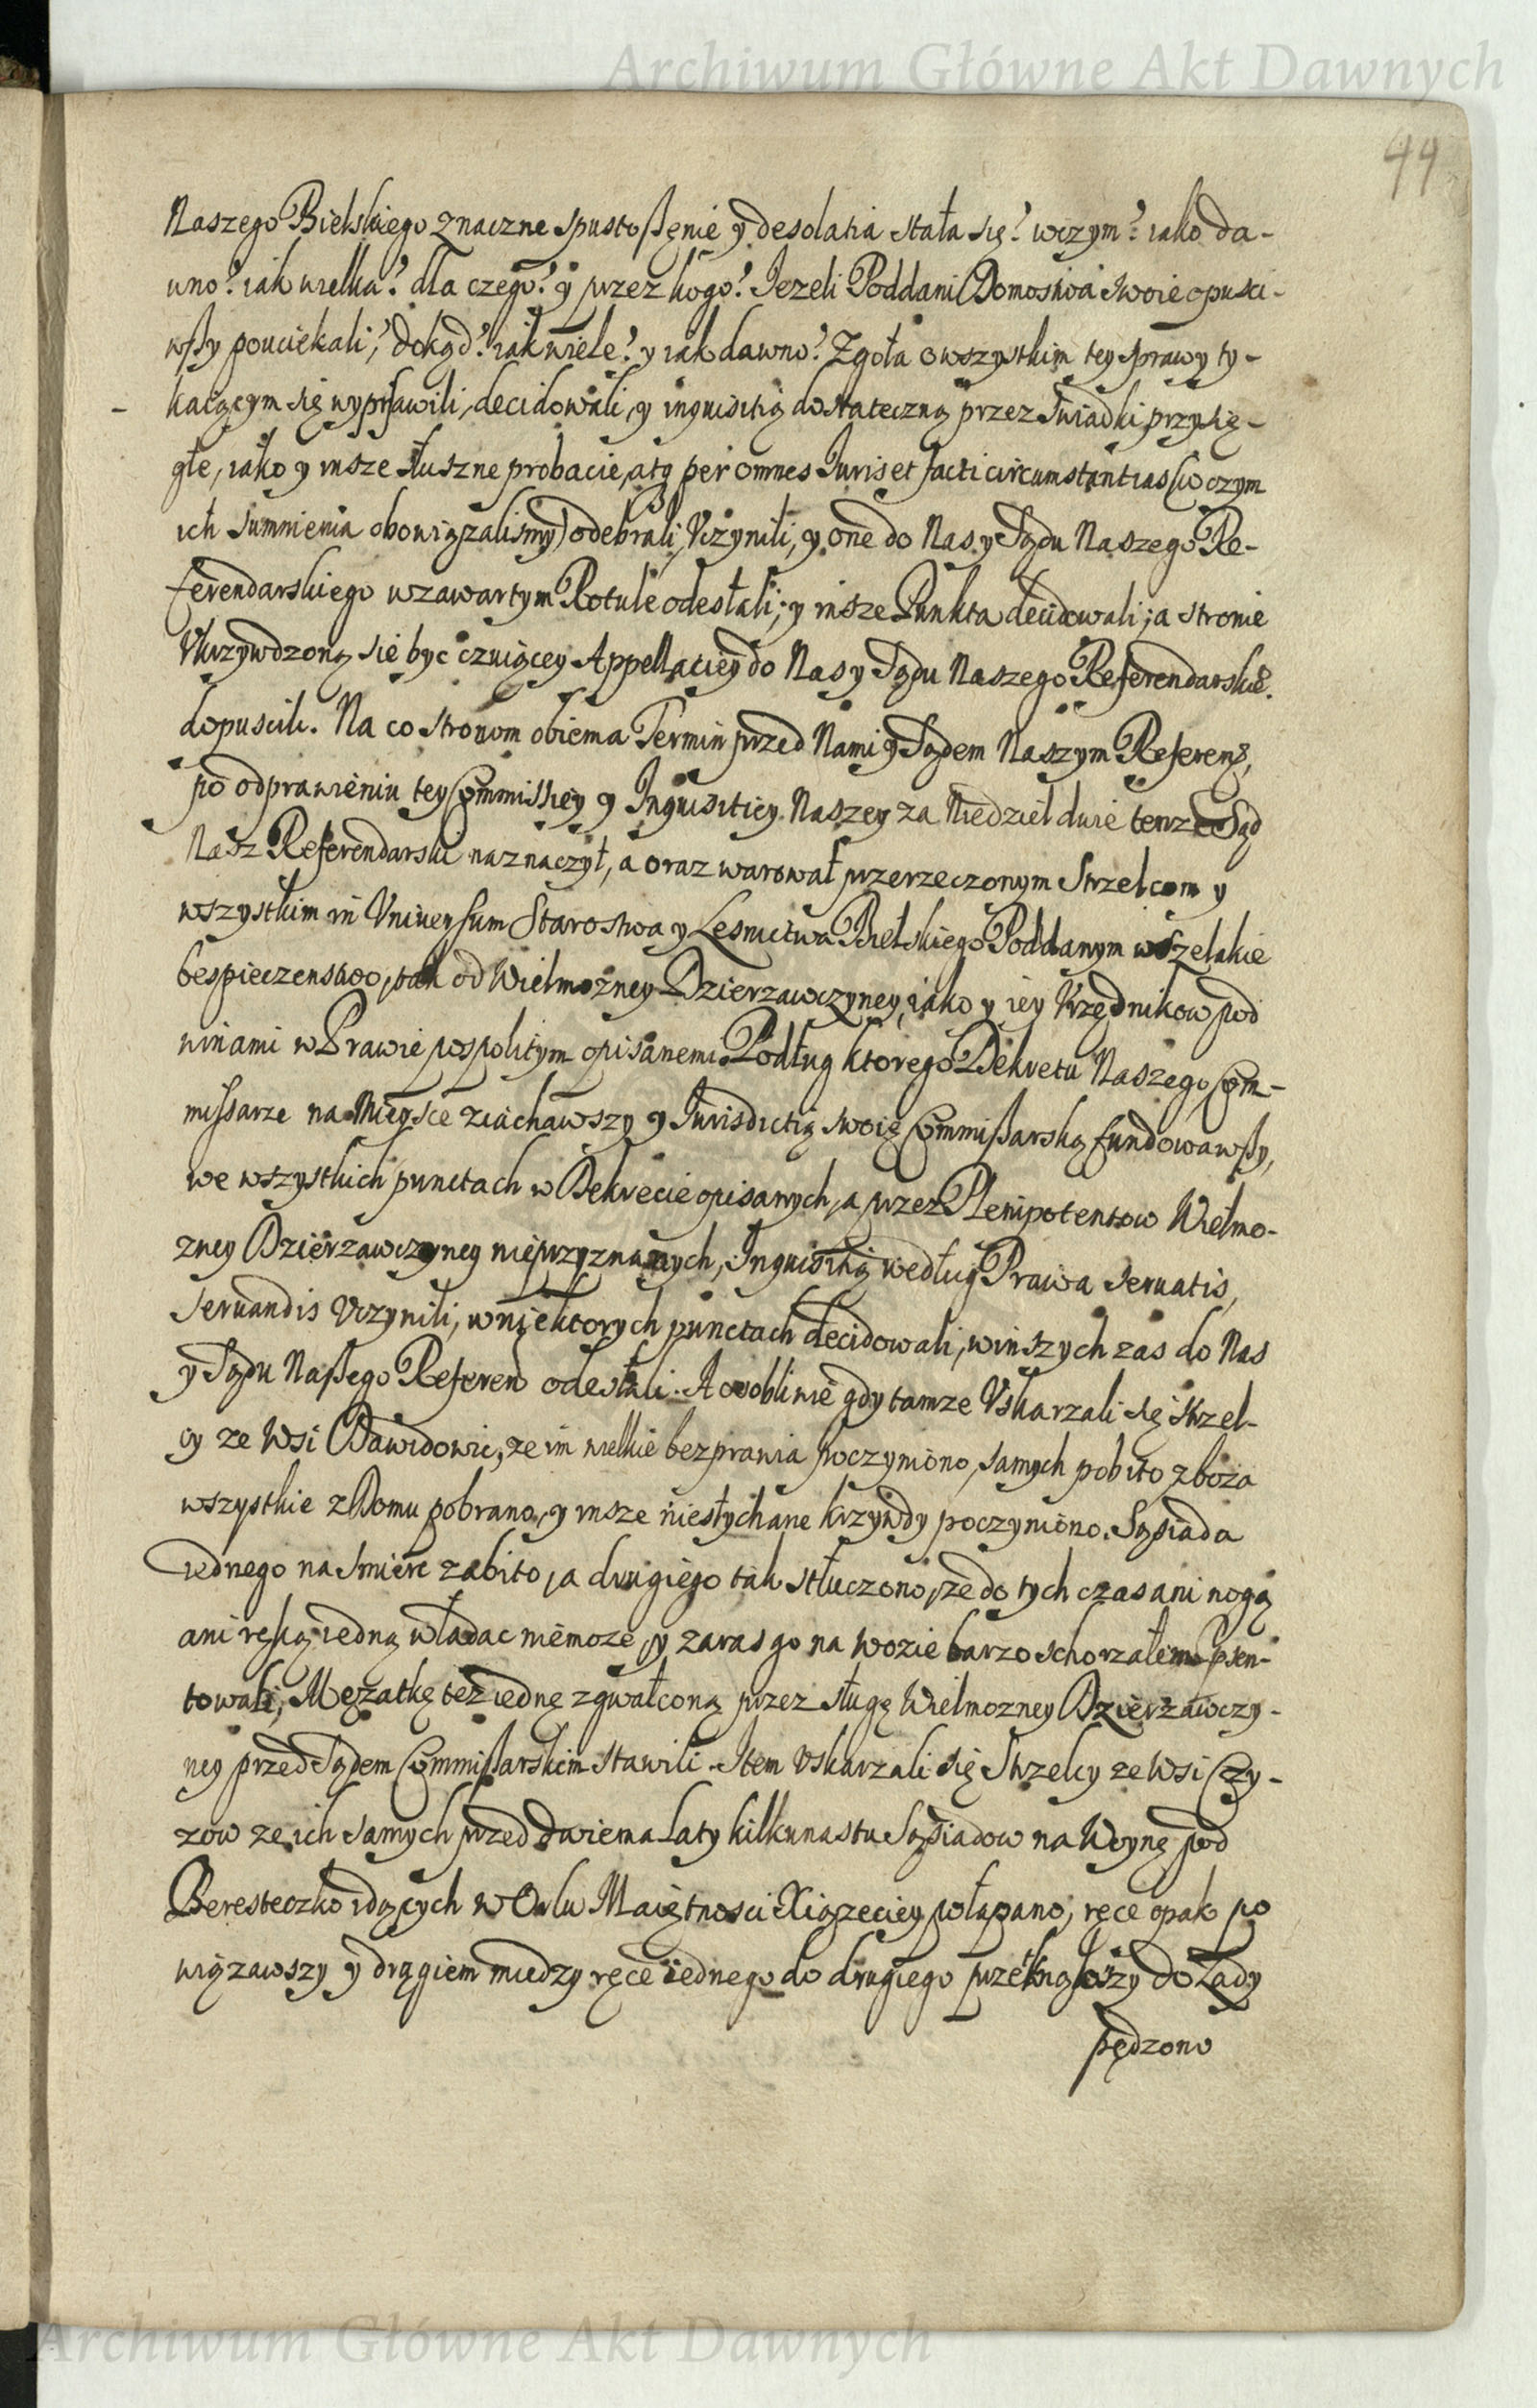 Archiwum Główne Akt Dawnych
44
Naszego Bielskiego znaczne spustoßęnie y desolatia stała się? wczym? iako da-
wno? iak wielka? dla czego? y przez kogo? Iezeli Poddani Domostwa swoie opusci-
wßy pouciekali; dokąd? iak wiele? y iak dawno? Zgoła o wszystkim tey sprawy ty-
kaiącym się wyprawili, decidowali, y inquisitią dostateczną przez Swiadki przysię-
głe, iako y insze słuszne probacie, atq per omnes Iuris et facti circumstantias (o czym
ich sumnienia obowiązalismy) odebrali, Vczynili, y one do Nas y Sądu Naszego Re-
ferendarskiego w zawartym Rotule odesłali; y insze Punkta decidowali; a stronie
Vkrzywdzoną sie byc czuiącey Appellatiey do Nas y Sądu Naszego Referendarskie.
dopuscili. Na co stronom obiema Termin przed Nami y Sądem Naszym Referend,
po odprawieniu tey Commissiey y Inquisitiey Naszey za Niedziel dwie tenze Sąd
Nasz Referendarski naznaczył, a oraz warował przerzeczonym Strzelcom y
wszystkim in Vniuersum Starostwa y Lesnictwa Bielskiego Poddanym wszelakie
bespieczenstwo, tak od Wielmozney Dzierzawczyney, iako y iey Vrzędnikow pod
winami w Prawie pospolitym opisanemi. Podług ktorego Dekretu Naszego Com-
missarze na Mieysce ziachawszy y Iurisdictią swoię Commißarską fundowawßy,
we wszystkich punctach w Dekrecie opisanych, a przez Plenipotentow Wielmo-
zney Dzierzawczyney nieprzyznanych, Inquisitią według Prawa seruatis,
seruandis Vczynili, w niektorych punctach decidowali, w inszych zas do Nas
y Sądu Naßego Referend odesłali. A osobliwie gdy tamze Vskarzali się strzel-
cy ze Wsi Dawidowic, ze im wielkie bezprawia poczyniono, samych pobito zboza
wszystkie z Domu pobrano, y insze niesłychane krzywdy poczyniono. Sąsiada
iednego na smierc zabito, a drugiego tak stłuczono, ze do tych czas ani nogą
ani ręką iedną władac niemoze, y zaras go na wozie barzo schorzałem psen-
towali; Męzatkę tez iednę zgwałconą przez sługę Wielmozney Dzierzawczy-
ney przed Sądem Commißarskim stawili. Item Vskarzali się Strzelcy ze Wsi Czy-
zow ze ich samych przed dwiema Laty kilkunastu Sąsiadow na Woynę pod
Beresteczko idących w Orlu Maiętnosci Xiązeciey połapano, ręce opak po
wiązawszy y drągiem miedzy ręce iednego do drugiego przetknąwszy do Zady
pędzono
Archiwum Główne Akt Dawnych